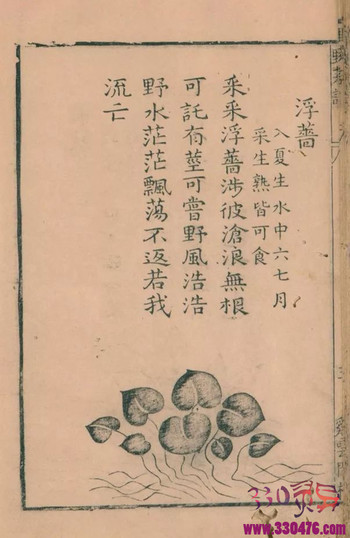 浮薔
入夏生水中六七月
采生熟皆可食
采采浮薔涉彼滄浪無根
可託有莖可嘗野風浩浩
野水茫茫飄蕩不返若我
流亡
330
www.330476.com